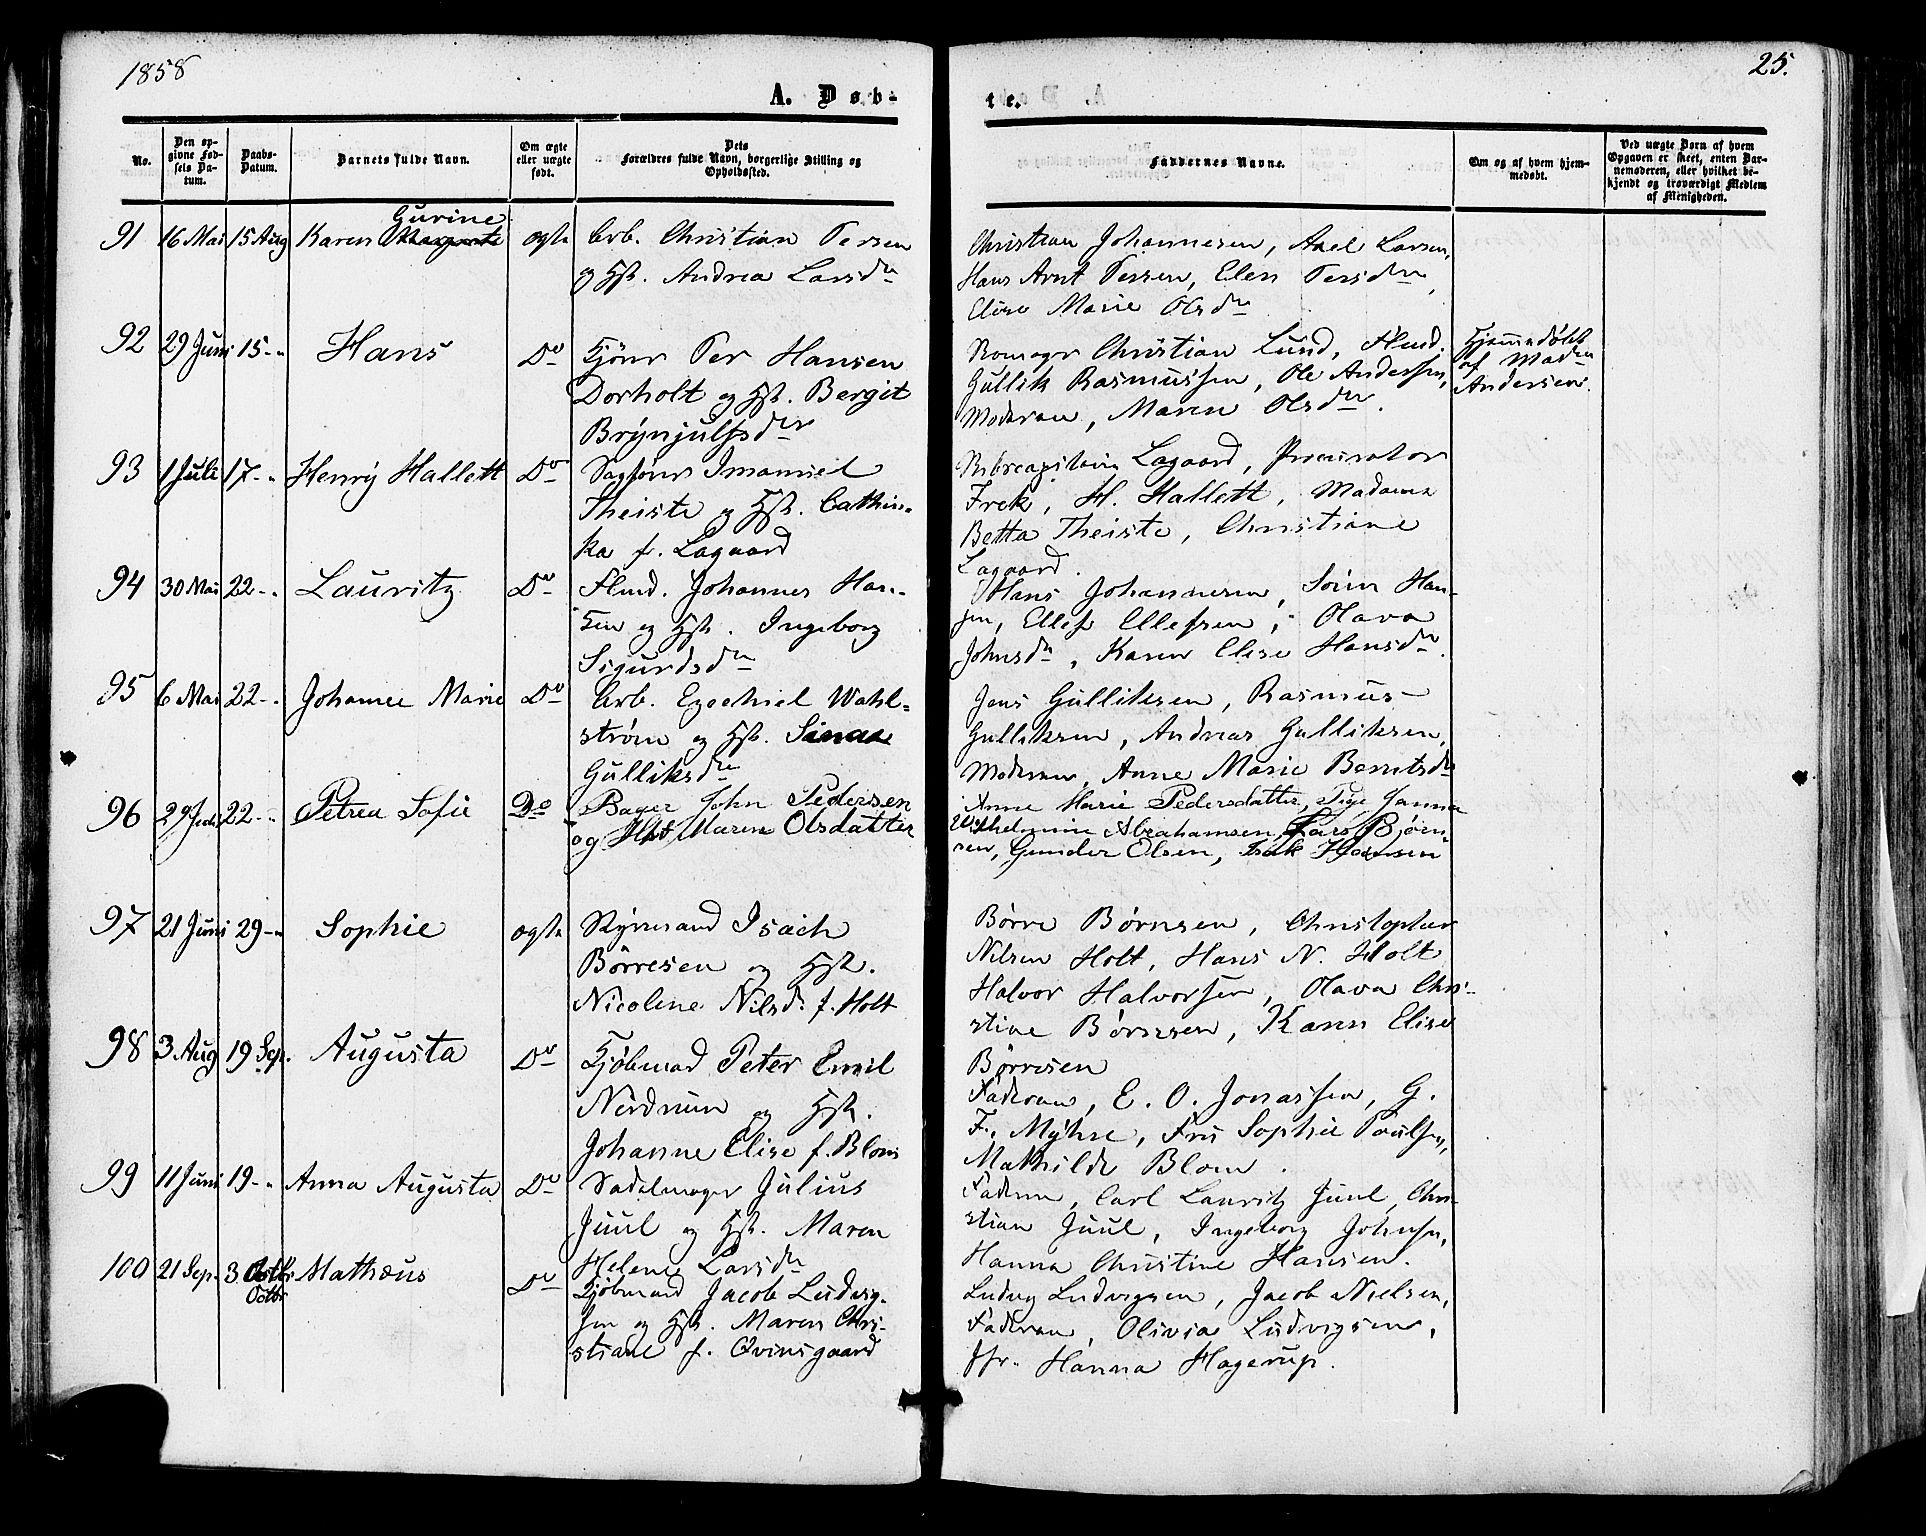 1858
25.
A. Døb-
te.
No.
Den op-
givne Fød-
sels Da-
tum.
Daabs-
Datum.
Barnets fulde Navn.
Om ægte
eller uægte
født.
Dets
Forældres fulde Navn, borgerlige Stilling og
Opholdssted.
Faddernes Navne.
Om og af hvem hjem-
medøbt.
Ved uægte Børn af hvem
Opgaven er skeet, enten Bar-
nemoderen, eller hvilket be-
kjendt og troværdigt Medlem
af Menigheden.
Gurine
91 16 Mai 15 Aug Karen Margrete ægte Arb. Christian Persen
og Hst. Andrea Larsdr
Christian Johannesen, Axel Larsen,
Hans Arnt Persen, Elen Persdr,
Elise Marie Olsdr
92 29 Juni 15 - " Hans Do Per Hansen
Dorholt og Hst. Bergit
Brynjulfsdr
Christian Lund,
Gullik Rasmussen, Ole Andersen,
Moderen, Maren Olsdr.
Hjemmedøbt
af Madm
Andersen.
93 1 Juli 17 - " Henry Hallett Do Sagfører Imanuel
Theiste og Hst. Cathin-
ka f. Lagaard
Lagaard, Procurator
H. Hallett, Madame
Betta Theiste, Christiane
Lagaard.
94 30 Mai 22 - " Lauritz Do Johannes Han-
sen og Hst. Ingeborg
Sigurdsdr
Hans Johannesen, Søren Han-
sen, Ellef Ellefsen, Olava
Johnsdr, Karen Elise Hansdr.
95 6 Mai 22 - " Johanne Marie Do Arb. Ezechiel Wahl-
strøm og Hst.
Gulliksdr
Jens Gulliksen, Rasmus
Gulliksen, Andreas Gulliksen,
Moderen, Anne Marie Berntsdr
96 22 - " Petrea Sofie Do Bager John Pedersen
og Hst Maren Olsdatter
Anne Marie Pedersdatter, Pige Janna
Wilhelmine Abrahamsen, Lars Bjørn-
sen, Gunder Olsen, Isak Hansen
97 21 Juni 29 - " Sophie ægte Isach
Børresen og Hst.
Nicoline Nilsd. f. Holt
Børre Børnsen, Christopher
Nilsen Holt, Hans N. Holt
Halvor Halvorsen, Olava Chri-
stine Børnsen, Karen Elise
Børresen
98 3 Aug 19 Sep. Augusta Do Kjøbmand Peter Emil
Nerdrum og Hst.
Johanne Elise f. Blom
Faderen, E. O. Jonassen, G.
F. Myhre, Fru Sophie Poulsen,
Mathilde Blom.
99 11 Juni 19 - " Anna Augusta Do Sadelmager Julius
Juul og Hst. Maren
Helene Larsdr
Faderen, Carl Lauritz Juul, Chri-
stian Juul, Ingeborg Johnsen,
Hanna Christine Hansen.
100 21 Sep. 3 Octbr Mathæus Do Kjøbmand Jacob Ludvig-
Octbr
sen og Hst. Maren Chri-
stiane f. Qvinsgaard
Ludvig Ludvigsen, Jacob Nielsen,
Faderen, Olivia Ludvigsen,
Jfr. Hanna Hagerup.